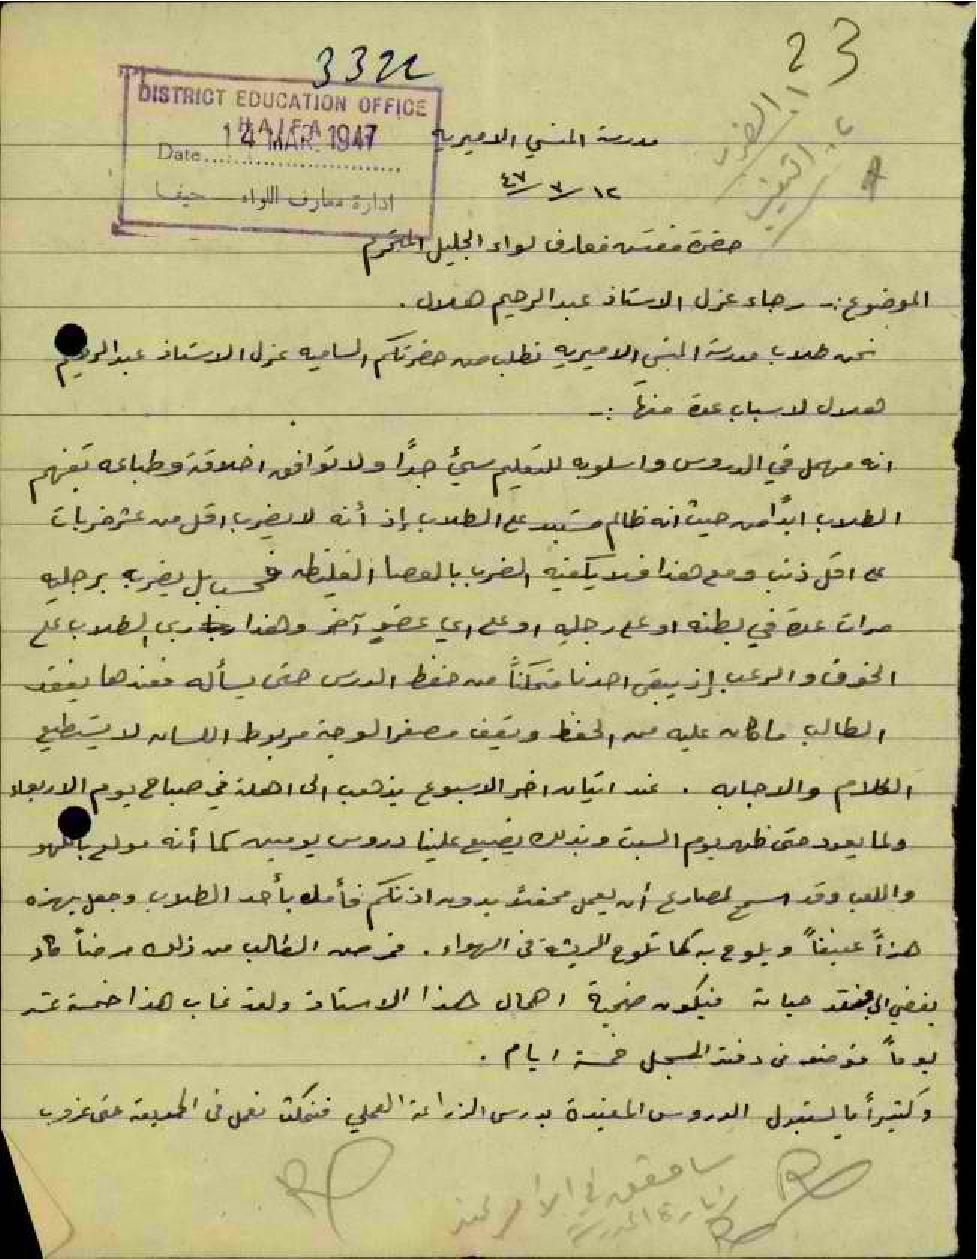 23
3322
DISTRICT EDUCATION OFFICE
HAIFA
14 MAR. 1947
Date
ادارة معارف اللواء — حيفا
مدرسة المنسي الاميرية
١٢/ ٣/ ٤٧
حضرة مفتش معارف لواء الجليل المحترم
الموضوع :- رجاء عزل الاستاذ عبد الرحيم هلال .
نحن طلاب مدرسة المنسي الاميريه نطلب من حضرتكم الساميه عزل الاستاذ عبد الرحيم
هلال لاسباب عدة منها :-
انه مهمل في الدروس واسلوبه للتعليم سيئ جدًا ولا توافق اخلاقه وطباعه
الطلاب ابدًا من حيث انه ظالم مستبد على الطلاب إذ أنه لا يضرب اقل من عشر ضربات
على اقل ذنب ومع هذا فلا يكفيه الضرب بالعصا الغليظه فحسب بل يضرب برجليه
مرات عدة في بطنه او على رجله او على اي عضوٍ آخر وهذا ربى الطلاب على
الخوف والرعب إذ يبقى احدنا متمكنًا من حفظ الدرس حتى يسأله فعندها يفقد
الطالب ما كان عليه من الحفظ ويقف مصفر الوجه مربوط اللسان لا يستطيع
الكلام والاجابه . عند اتيان اخر الاسبوع يذهب الى اهله في صباح يوم الاربعاء
ولما يعود حتى ظهر يوم السبت وبذلك يضيع علينا دروس يومين كما أنه مولع باللهو
واللعب وقد سمح لمصارع أن يعمل حفلة بدون اذنكم فأمسك بأحد الطلاب وجعل يهزه
هزاً عنيفاً ويلوح به كما تلوح الريشة في الهواء . فمرض الطالب من ذلك مرضاً كاد
يفضي الى فقد حياته فيكون ضحية اهمال هذا الاستاذ ولقد غاب هذا خمسة عشر
يوماً فوضعه في دفتر المسجل خمسة ايام .
وكثيراً ما يستبدل الدروس المفيدة بدرس الزراعة العملي فنمكث نعمل في الحديقة حتى غروب
سأحقق في الأمر عند
زيارة المدرسة